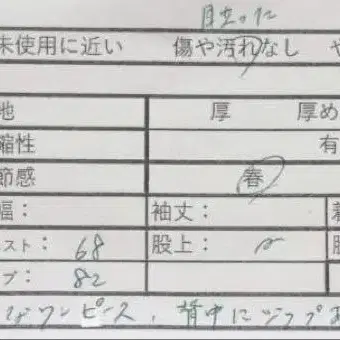 目立った
未使用に近い 傷や汚れなし や
地 厚 厚め
縮性 有
節感 春
幅： 袖丈： 着
スト： 68 股上： 股
プ： 82
ワンピース、背中にジップあ